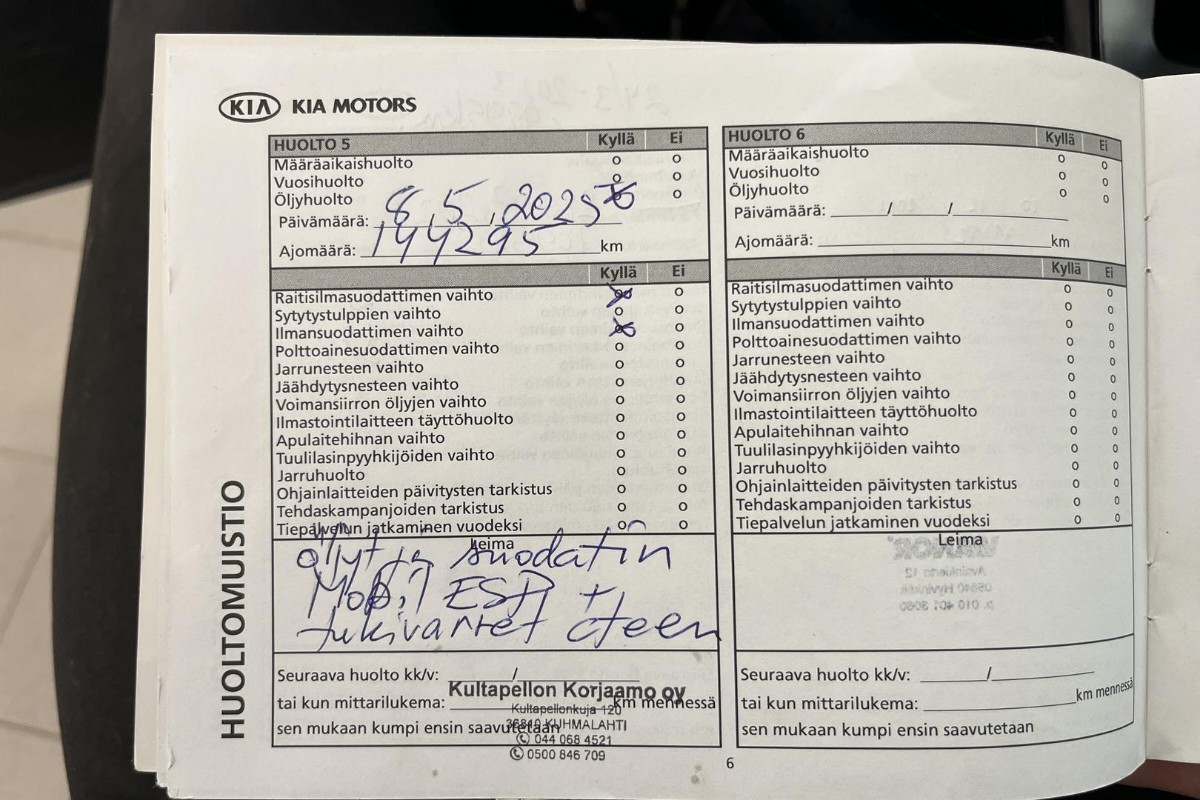 KIA KIA MOTORS
HUOLTO 5 Kyllä Ei
Määräaikaishuolto o o
Vuosihuolto o o
Öljyhuolto o
Päivämäärä: 8,5,2025
Ajomäärä: 144295 km
Kyllä Ei
Raitisilmasuodattimen vaihto o
Sytytystulppien vaihto o o
Ilmansuodattimen vaihto o
Polttoainesuodattimen vaihto o o
Jarrunesteen vaihto o o
Jäähdytysnesteen vaihto o o
Voimansiirron öljyjen vaihto o o
Ilmastointilaitteen täyttöhuolto o o
Apulaitehihnan vaihto o o
Tuulilasinpyyhkijöiden vaihto o o
Jarruhuolto o o
Ohjainlaitteiden päivitysten tarkistus o o
Tehdaskampanjoiden tarkistus o o
Tiepalvelun jatkaminen vuodeksi o o
Leima
öljyt ja suodatin
Mobil ESP +
tukivarret eteen
Seuraava huolto kk/v: /
tai kun mittarilukema: km mennessä
sen mukaan kumpi ensin saavutetaan
Kultapellon Korjaamo oy
Kultapellonkuja 120
36840 KUHMALAHTI
044 068 4521
0500 846 709
HUOLTO 6 Kyllä Ei
Määräaikaishuolto o o
Vuosihuolto o o
Öljyhuolto o o
Päivämäärä: / /
Ajomäärä: km
Kyllä Ei
Raitisilmasuodattimen vaihto o o
Sytytystulppien vaihto o o
Ilmansuodattimen vaihto o o
Polttoainesuodattimen vaihto o o
Jarrunesteen vaihto o o
Jäähdytysnesteen vaihto o o
Voimansiirron öljyjen vaihto o o
Ilmastointilaitteen täyttöhuolto o o
Apulaitehihnan vaihto o o
Tuulilasinpyyhkijöiden vaihto o o
Jarruhuolto o o
Ohjainlaitteiden päivitysten tarkistus o o
Tehdaskampanjoiden tarkistus o o
Tiepalvelun jatkaminen vuodeksi o o
Leima
Seuraava huolto kk/v: /
tai kun mittarilukema: km mennessä
sen mukaan kumpi ensin saavutetaan
6
HUOLTOMUISTIO